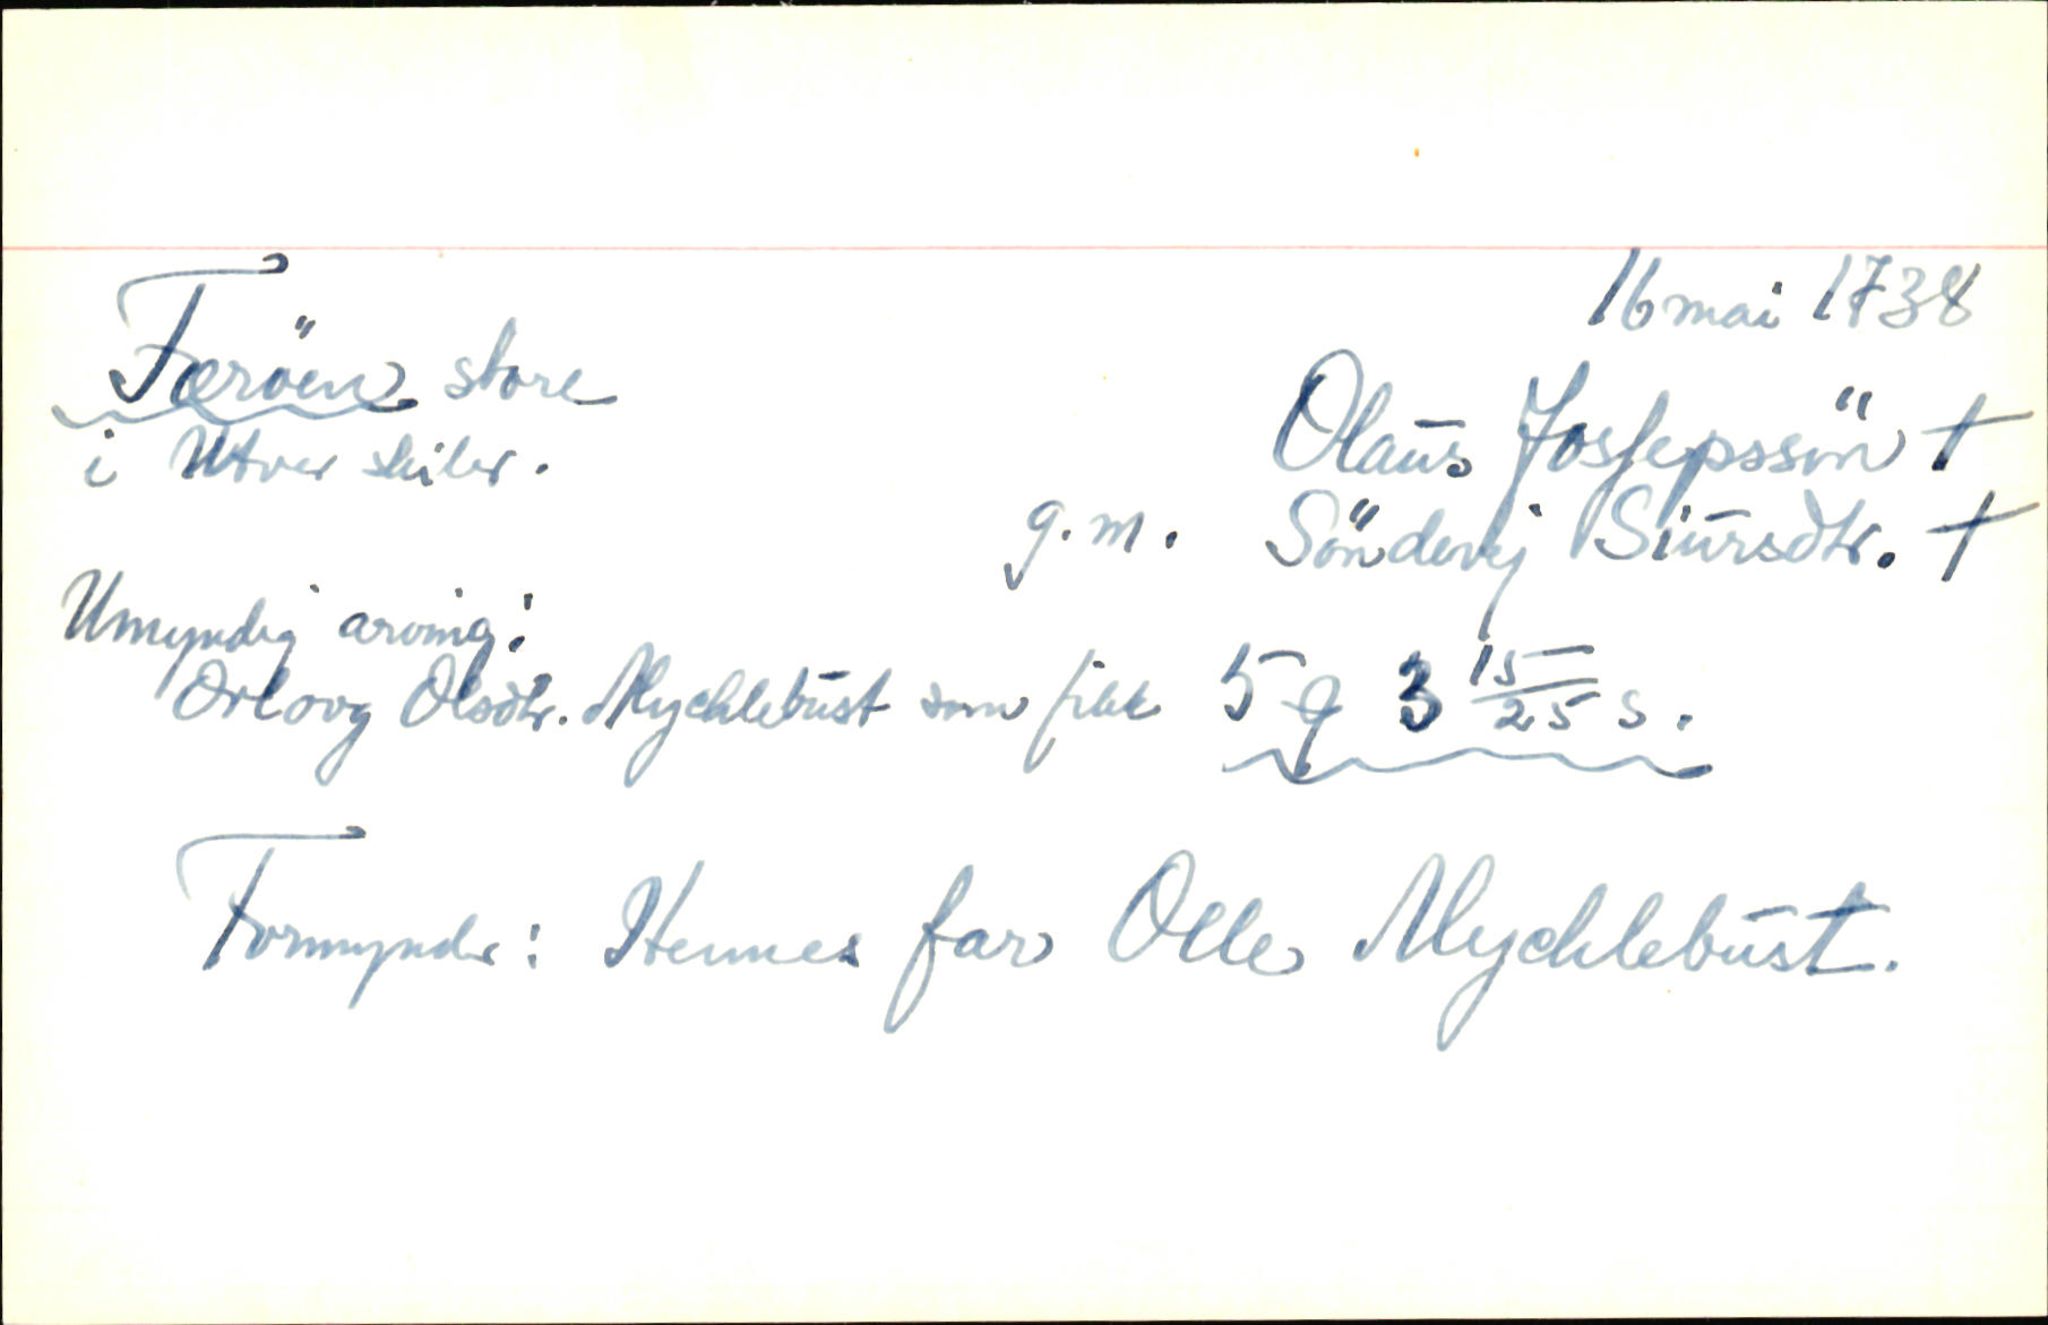 16 mai 1738
Færöen store
i Utver skiber.
Olaus Josfepssön †
g.m. Sönderj Siursdtr. †
Umyndig arving:
Orlovg Olsdtr. Mychlebust som fikk 5 q 3 15/25 s.
Formynder: Hennes far Olle Mychlebust.